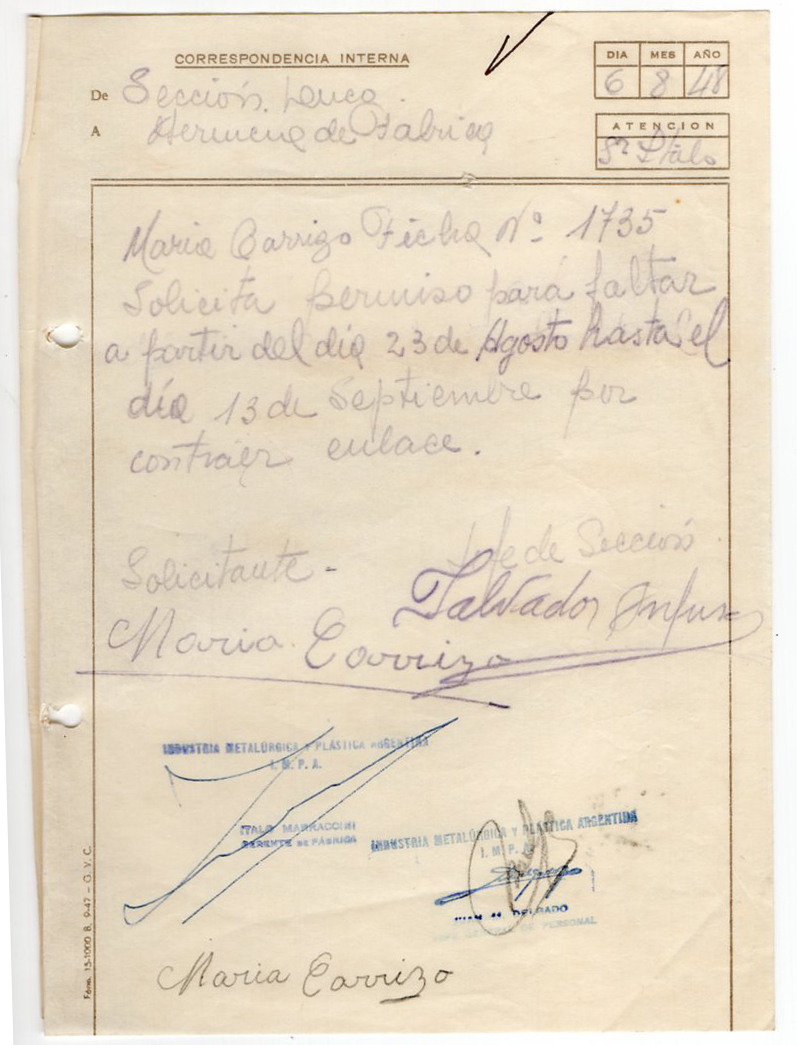 CORRESPONDENCIA INTERNA
DIA MES AÑO
6 8 48
De Sección
A Gerencia de Fabrica
ATENCION
Sr Italo
Maria Carrizo Ficha Nº 1735
Solicita permiso para faltar
a partir del día 23 de Agosto hasta el
día 13 de Septiembre por
contraer enlace.
Solicitante - Jefe de Sección
Salvador
Maria Carrizo
INDUSTRIA METALÚRGICA Y PLASTICA ARGENTINA
I. M. P. A.
ITALO MARRACCINI
GERENTE DE FÁBRICA
INDUSTRIA METALÚRGICA Y PLASTICA ARGENTINA
I. M. P. A.
JUAN M. DELGADO
JEFE GENERAL DE PERSONAL
Maria Carrizo
Fóm. 15-1000 B. 9-47 - G. Y. C.